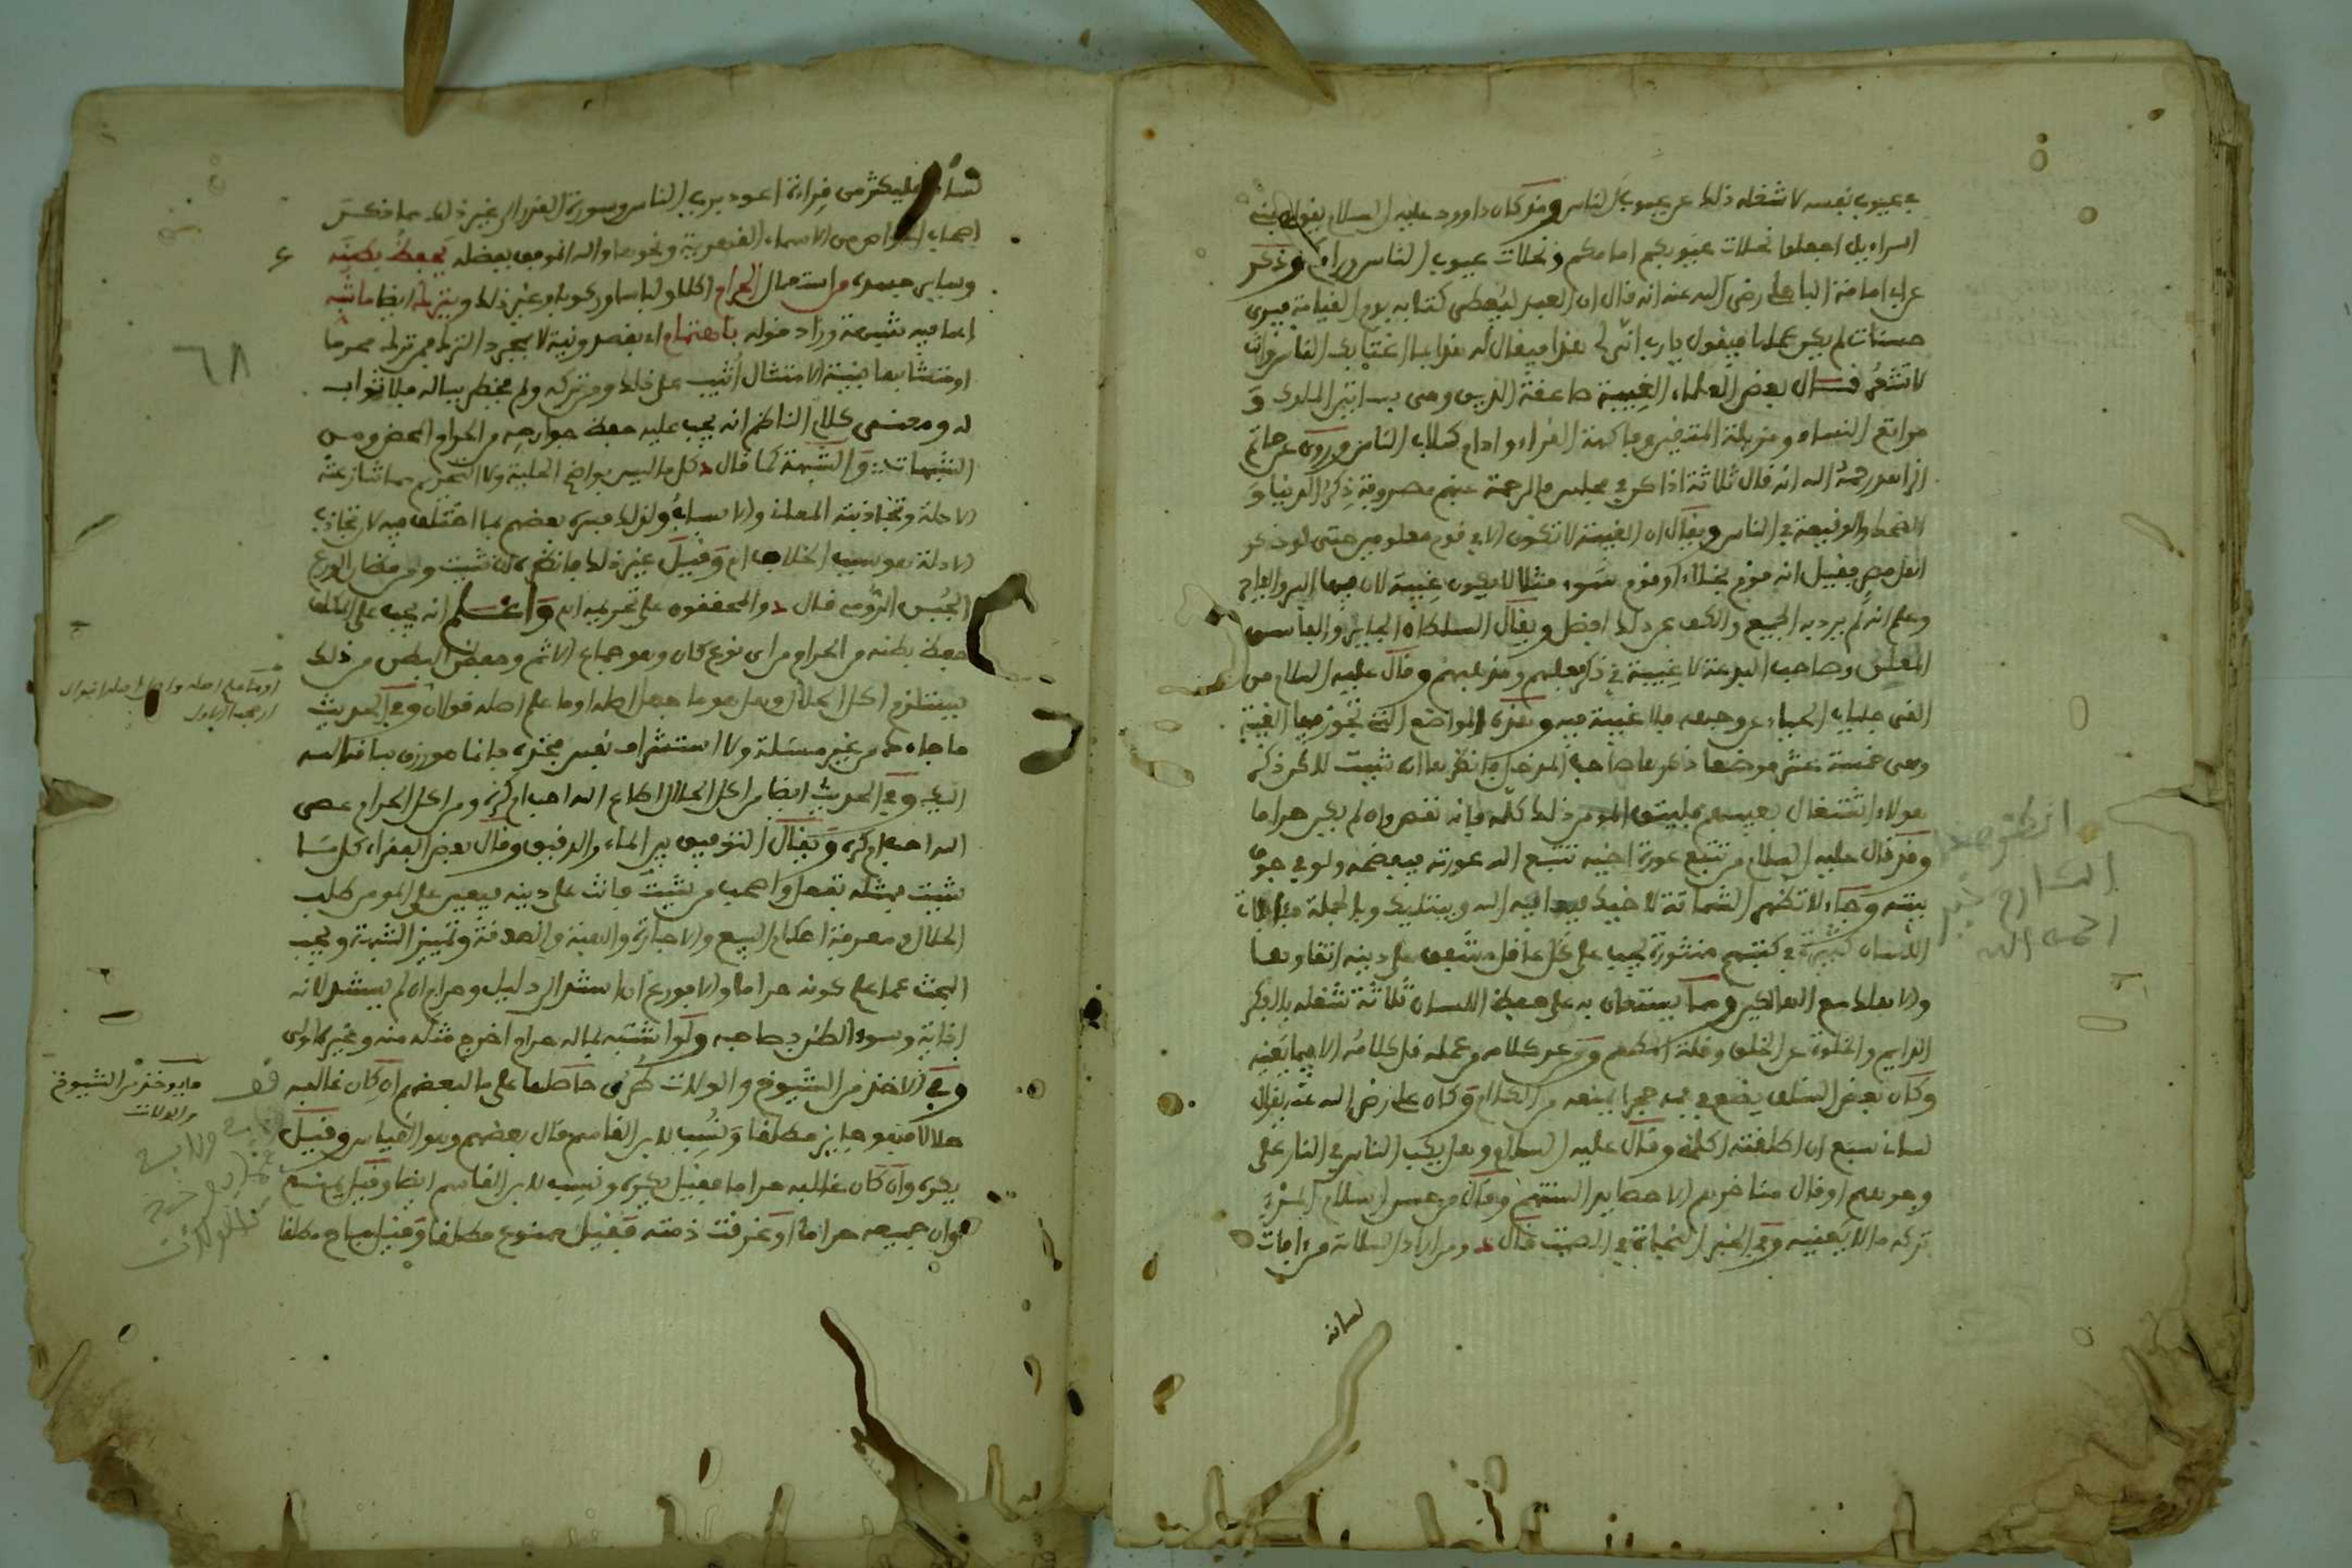 في عيوب نفسه لاشغله ذلك عن عيوب الناس وقد كان داوود عليه السلام يقول يبني
اسراءيل اجعلوا نحلات عيوبكم امامكم ونحلات عيوب الناس وراءكم وذكر
عن ابي امامة الباهلي رضي الله عنه انه قال ان العبد ليعطى كتابه يوم القيامة فيرى
حسنات لم يكن عملها فيقول يا رب انى لي هذا فيقال له هذا بما اغتابك الناس وانت
لا تشعر قال بعض العلماء الغيبة صاعقة الدين وهي بساتين الملوك و
مراتع النساء ومزبلة المتقين وفاكهة القراء وادام كلاب الناس وروي عن حاتم
الزاهد رحمه الله انه قال ثلاثة اذا كن في مجلس فالرحمة عنهم مصروفة ذكر الدنيا و
الضحك والوقيعة في الناس ويقال ان الغيبة لا تكون الا في قوم معلومين حتى لو ذكر
اهل مصر فقيل انه قوم بخلاء او قوم سوء مثلا لا يكون غيبة لان فيها البر والفاجر
وعلم انه لم يرد به الجميع والكف عن ذلك افضل ويقال السلطان الجاير والفاسق
المعلن وصاحب البدعة لا غيبة في ذكر فعلهم ومذهبهم وقال عليه السلام من
القى جلباب الحياء عن وجهه فلا غيبة فيه وهذه المواضع التي تجوز فيها الغيبة
وهي خمسة عشر موضعا ذكرها صاحب المدخل وانظرها ان شيت لاكن ذكر
هولاء اشتغال بعيبهم فليتق المومن ذلك كله فانه نقص وان لم يكن حراما
وقد قال عليه السلام من تتبع عورة اخيه تتبع الله عورته فيفضحه ولو في جوف
بيته وجاء لا تظهر الشماتة لاخيك فيعافيه الله ويبتليك وبالجملة فئافات
اللسان كثيرة في كتبهم منثورة يجب على كل عاقل مشفق على دينه اتقاوها
والا هلك مع الهالكين ومما يستعان به على حفظ اللسان ثلاثة شغله بالذكر
الدايم والخلوة عن الخلق وقلة الطعم ومن عد كلامه من عمله قل كلامه الا فيما يعنيه
وكان بعض السلف يضع في فمه حجرا يمنعه من الكلام وكان علي رضي الله عنه يقال
لسانك سبع ان اطلقته اكلك وقال عليه السلام وهل يكب الناس في النار على
وجوههم او قال مناخرهم الا حصايد السنتهم وقال من حسن اسلام المرء
تركه ما لا يعنيه وفي الخبر النجاة في الصمت قال ومن اراد السلامة من ءافات
لسانه
انظر هذا
الشارح
رحمه الله
لسانه فليكثر من قراءة اعوذ برب الناس وسورة القدر الى غير ذلك مما ذكر
اصحاب الخواص من الاسماء ونحوها والله الموفق بفضله يحفظ بطنه
وساير جسده من استعمال الحرام اكلا ولباسا وركوبا وغير ذلك ويترك ايضا ما شبه
اي ما فيه شبهة وزاد قوله باهتمام اي بقصد ونية لا بمجرد الترك فمن ترك محرما
او متشابها بنية الامتثال اثيب على ذلك ومن تركه ولم يخطر بباله فلا ثواب
له ومعنى كلام الناظم انه يجب عليه حفظ جوارحه من الحرام المحض ومن
الشبهات والشبهة كما قال كل ما ليس بواضح الحلية ولا التحريم مما تنازعته
الادلة وتجاذبته المعاني والاسباب ولذلك فسره بعضهم بما اختلف فيه لان تجاذب
الادلة هو سبب الخلاف اهـ وقيل غير ذلك فانظره ان شيت ومن مظان الورع
الجبن الرومي قال والمحققون على تحريمه اهـ واعلم انه يجب على المكلف
حفظ بطنه من الحرام من اي نوع كان وهو جماع الاثم وحفظ البطن من ذلك
يستلزم اكل الحلال وهل هو ما جهل اصله او ما علم اصله قولان وفي الحديث
ما جاءك من غير مسئلة ولا استشراف نفس فخذه فانما هو رزق ساقه الله
اليك وفي الحديث ايضا من اكل الحلال اطاع الله احب ام كره ومن اكل الحرام عصى
الله احب ام كره ويقال التوفيق بين الماء والدقيق وقال بعض الفقراء كل ما
شيت فمثله تفعل واصحب من شيت فانت على دينه فيتعين على المومن طلب
الحلال ومعرفة احكام البيع والاجارة والهبة والصدقة وتمييز الشبهة ويجب
البحث عما علم كونه حراما والا فورع ان استند الى دليل وحرام ان لم يستند لانه
اذاية وسوء الظن بصاحبه ولو اشتبه بماله حرام اخرج مثله منه وغيره اولى
وفي الاخذ من الشيوخ والولات طرق حاصلها على ما لبعضهم ان كان غالبه
حلالا فهو جايز مطلقا ونسب لابن القاسم قال بعضهم وهو القياس وقيل
يكره وان كان غالبه حراما فقيل يكره ونسب لابن القاسم ايضا وقيل يمنع
وان جميعه حراما او استغرقت ذمته فقيل ممنوع مطلقا وقيل مباح مطلقا
٦٨
ما يوخذ من الشيوخ
والولات
قف